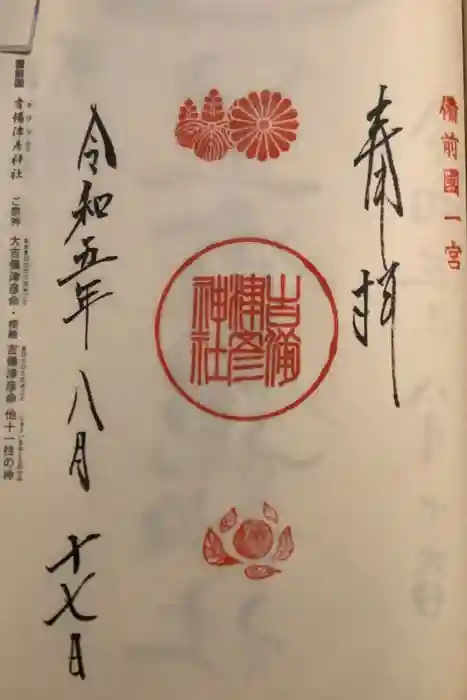 備前國一宮
奉拝
吉備
津彦
神社
令和五年 八月 十七日
備前国 吉備津彦神社 ご祭神 大吉備津彦命・相殿 吉備津彦命 他十一柱の神